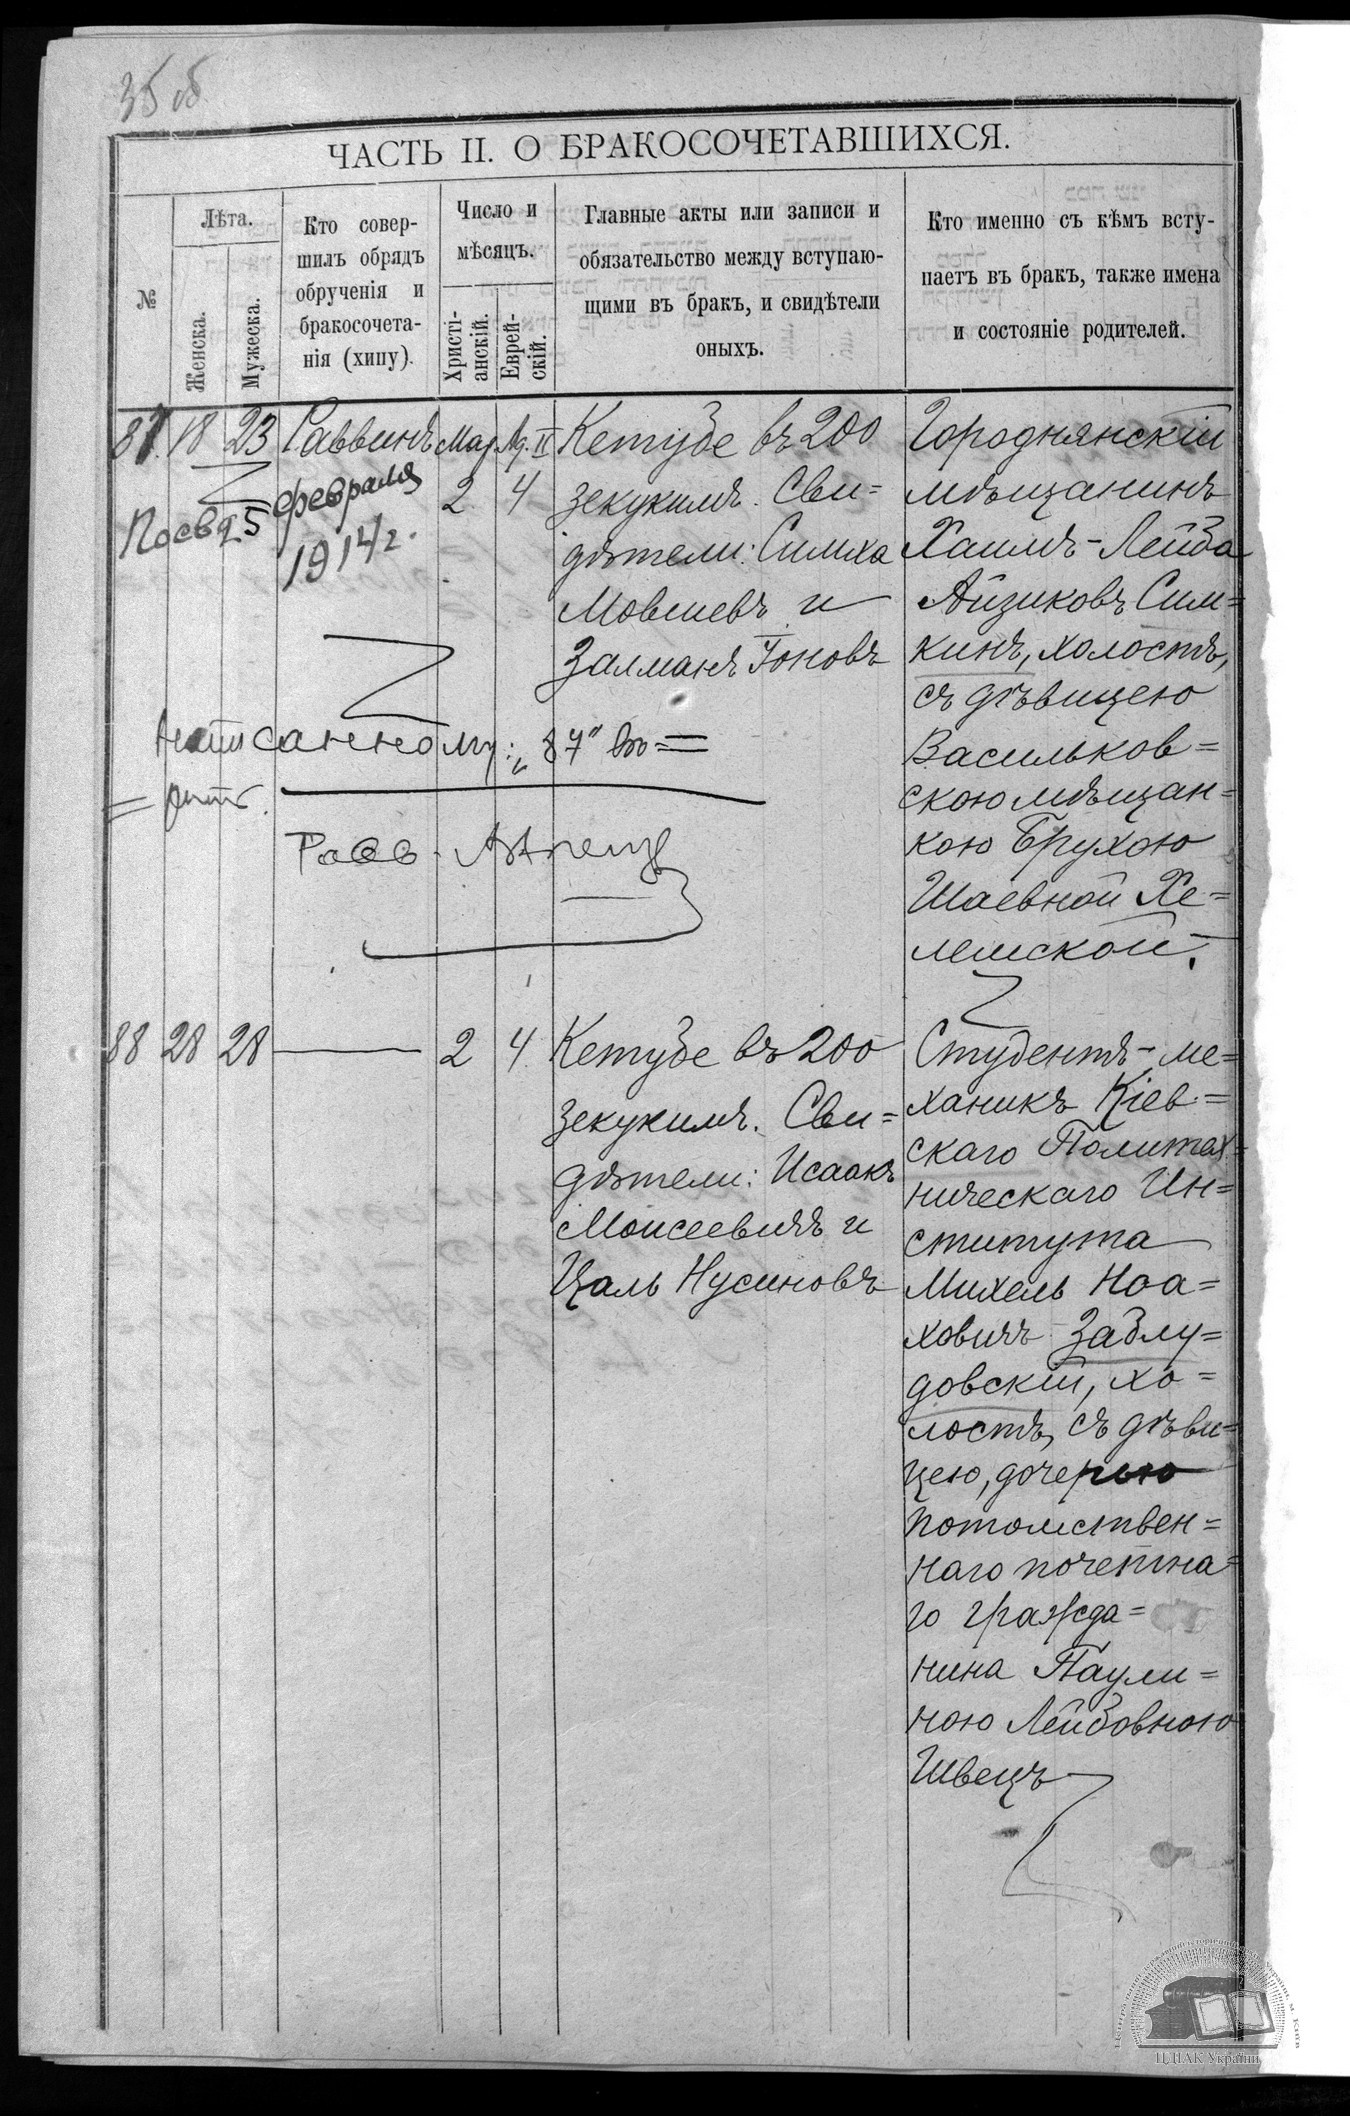 35 об
ЧАСТЬ II. О БРАКОСОЧЕТАВШИХСЯ.
№
Лѣта.
Женска.
Мужеска.
Кто совер-
шилъ обрядъ
обрученія и
бракосочета-
нія (хипу).
Число и
мѣсяцъ.
Христі-
анскій.
Еврей-
скій.
Главные акты или записи и
обязательство между вступаю-
щими въ бракъ, и свидѣтели
оныхъ.
Кто именно съ кѣмъ всту-
паетъ въ бракъ, также имена
и состояніе родителей.
87. 18 23 Раввинъ Мар. Ад. II
2 4
Посвид 5 февраля
1914 г.
Кетубе въ 200
зекукимъ. Сви=
дѣтели: Симха
Мовшевъ и
Залманъ Гоновъ
Городнянскій
мѣщанинъ
Хаимъ-Лейба
Айзиковъ Сим=
кинъ, холостъ,
съ дѣвицею
Васильков=
скою мѣщан=
кою Брухою
Шаевной Хе=
лемской.
писанному: „87" въ=
Равв.
88 28 28 — 2 4
Кетубе въ 200
зекукимъ. Сви=
дѣтели: Исаакъ
Моисеевичъ и
Цаль Нусиновъ
Студентъ-ме=
ханикъ Кіев=
скаго Политех=
ническаго Ин=
ститута
Михель Ноа=
ховичъ Заблу=
довскій, хо=
лостъ, съ дѣви=
цею, дочерью
потомствен=
наго почетна=
го гражда=
нина Паули=
ною Лейбовною
Швецъ
ЦДІАК України